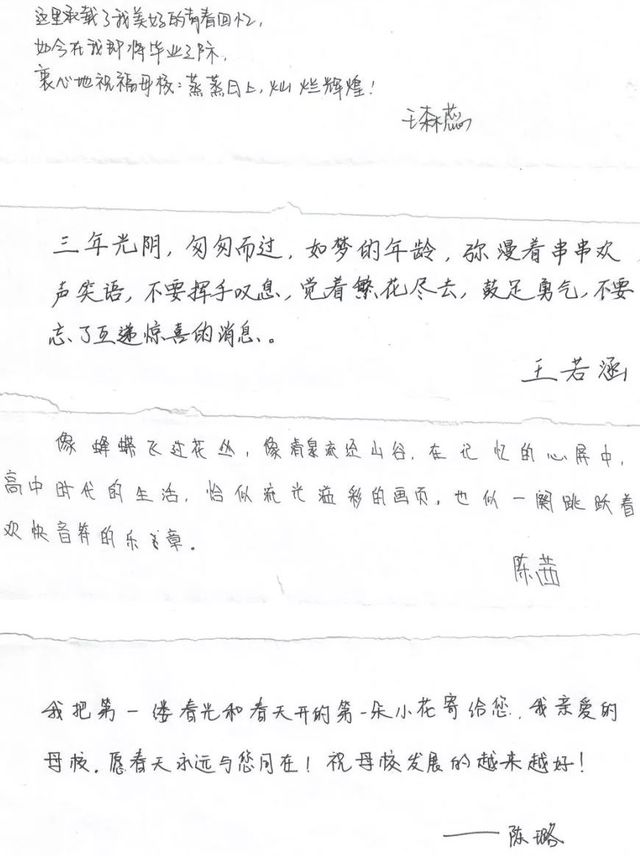 这里承载了我美好的青春回忆,
如今在我即将毕业之际,
衷心地祝福母校:蒸蒸日上,灿烂辉煌!
王森蕊
三年光阴,匆匆而过,如梦的年龄,弥漫着串串欢
声笑语,不要挥手叹息,觉着繁花尽去,鼓足勇气,不要
忘了互递惊喜的消息。
王若涵
像蝴蝶飞过花丛,像清泉流过山谷.在记忆的心屏中,
高中时代的生活,恰似流光溢彩的画页,也似一阕跳跃着
欢快音符的乐章.
陈茜
我把第一缕春光和春天开的第一朵小花寄给您,我亲爱的
母校.愿春天永远与您同在!祝母校发展的越来越好!
——陈璐